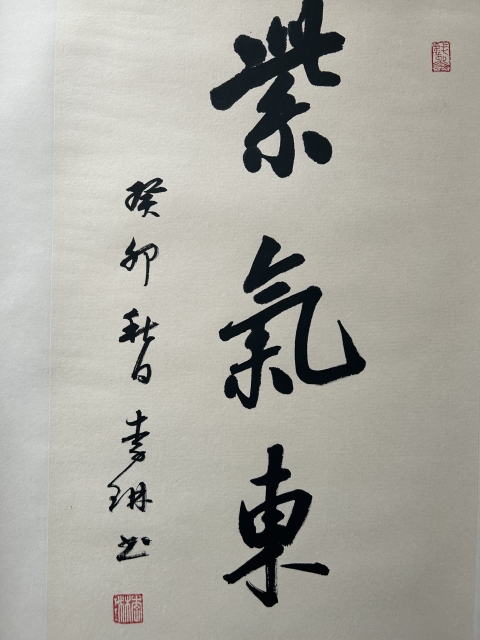 紫氣東
癸卯秋日李琳书